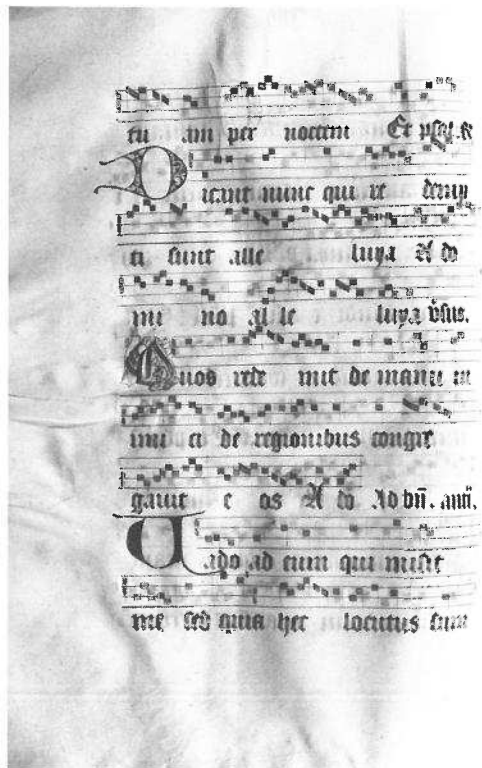 tu am per noctem Et psal. R
Dicant nunc qui re demp
ti sunt alle luya A do
mi no al le luya vsus.
Quos rede mit de manu in
imi ci de regionibus congre
gavit e os A do Ad bn. ant.
Vado ad eum qui misit
me sed quia hec locutus sum